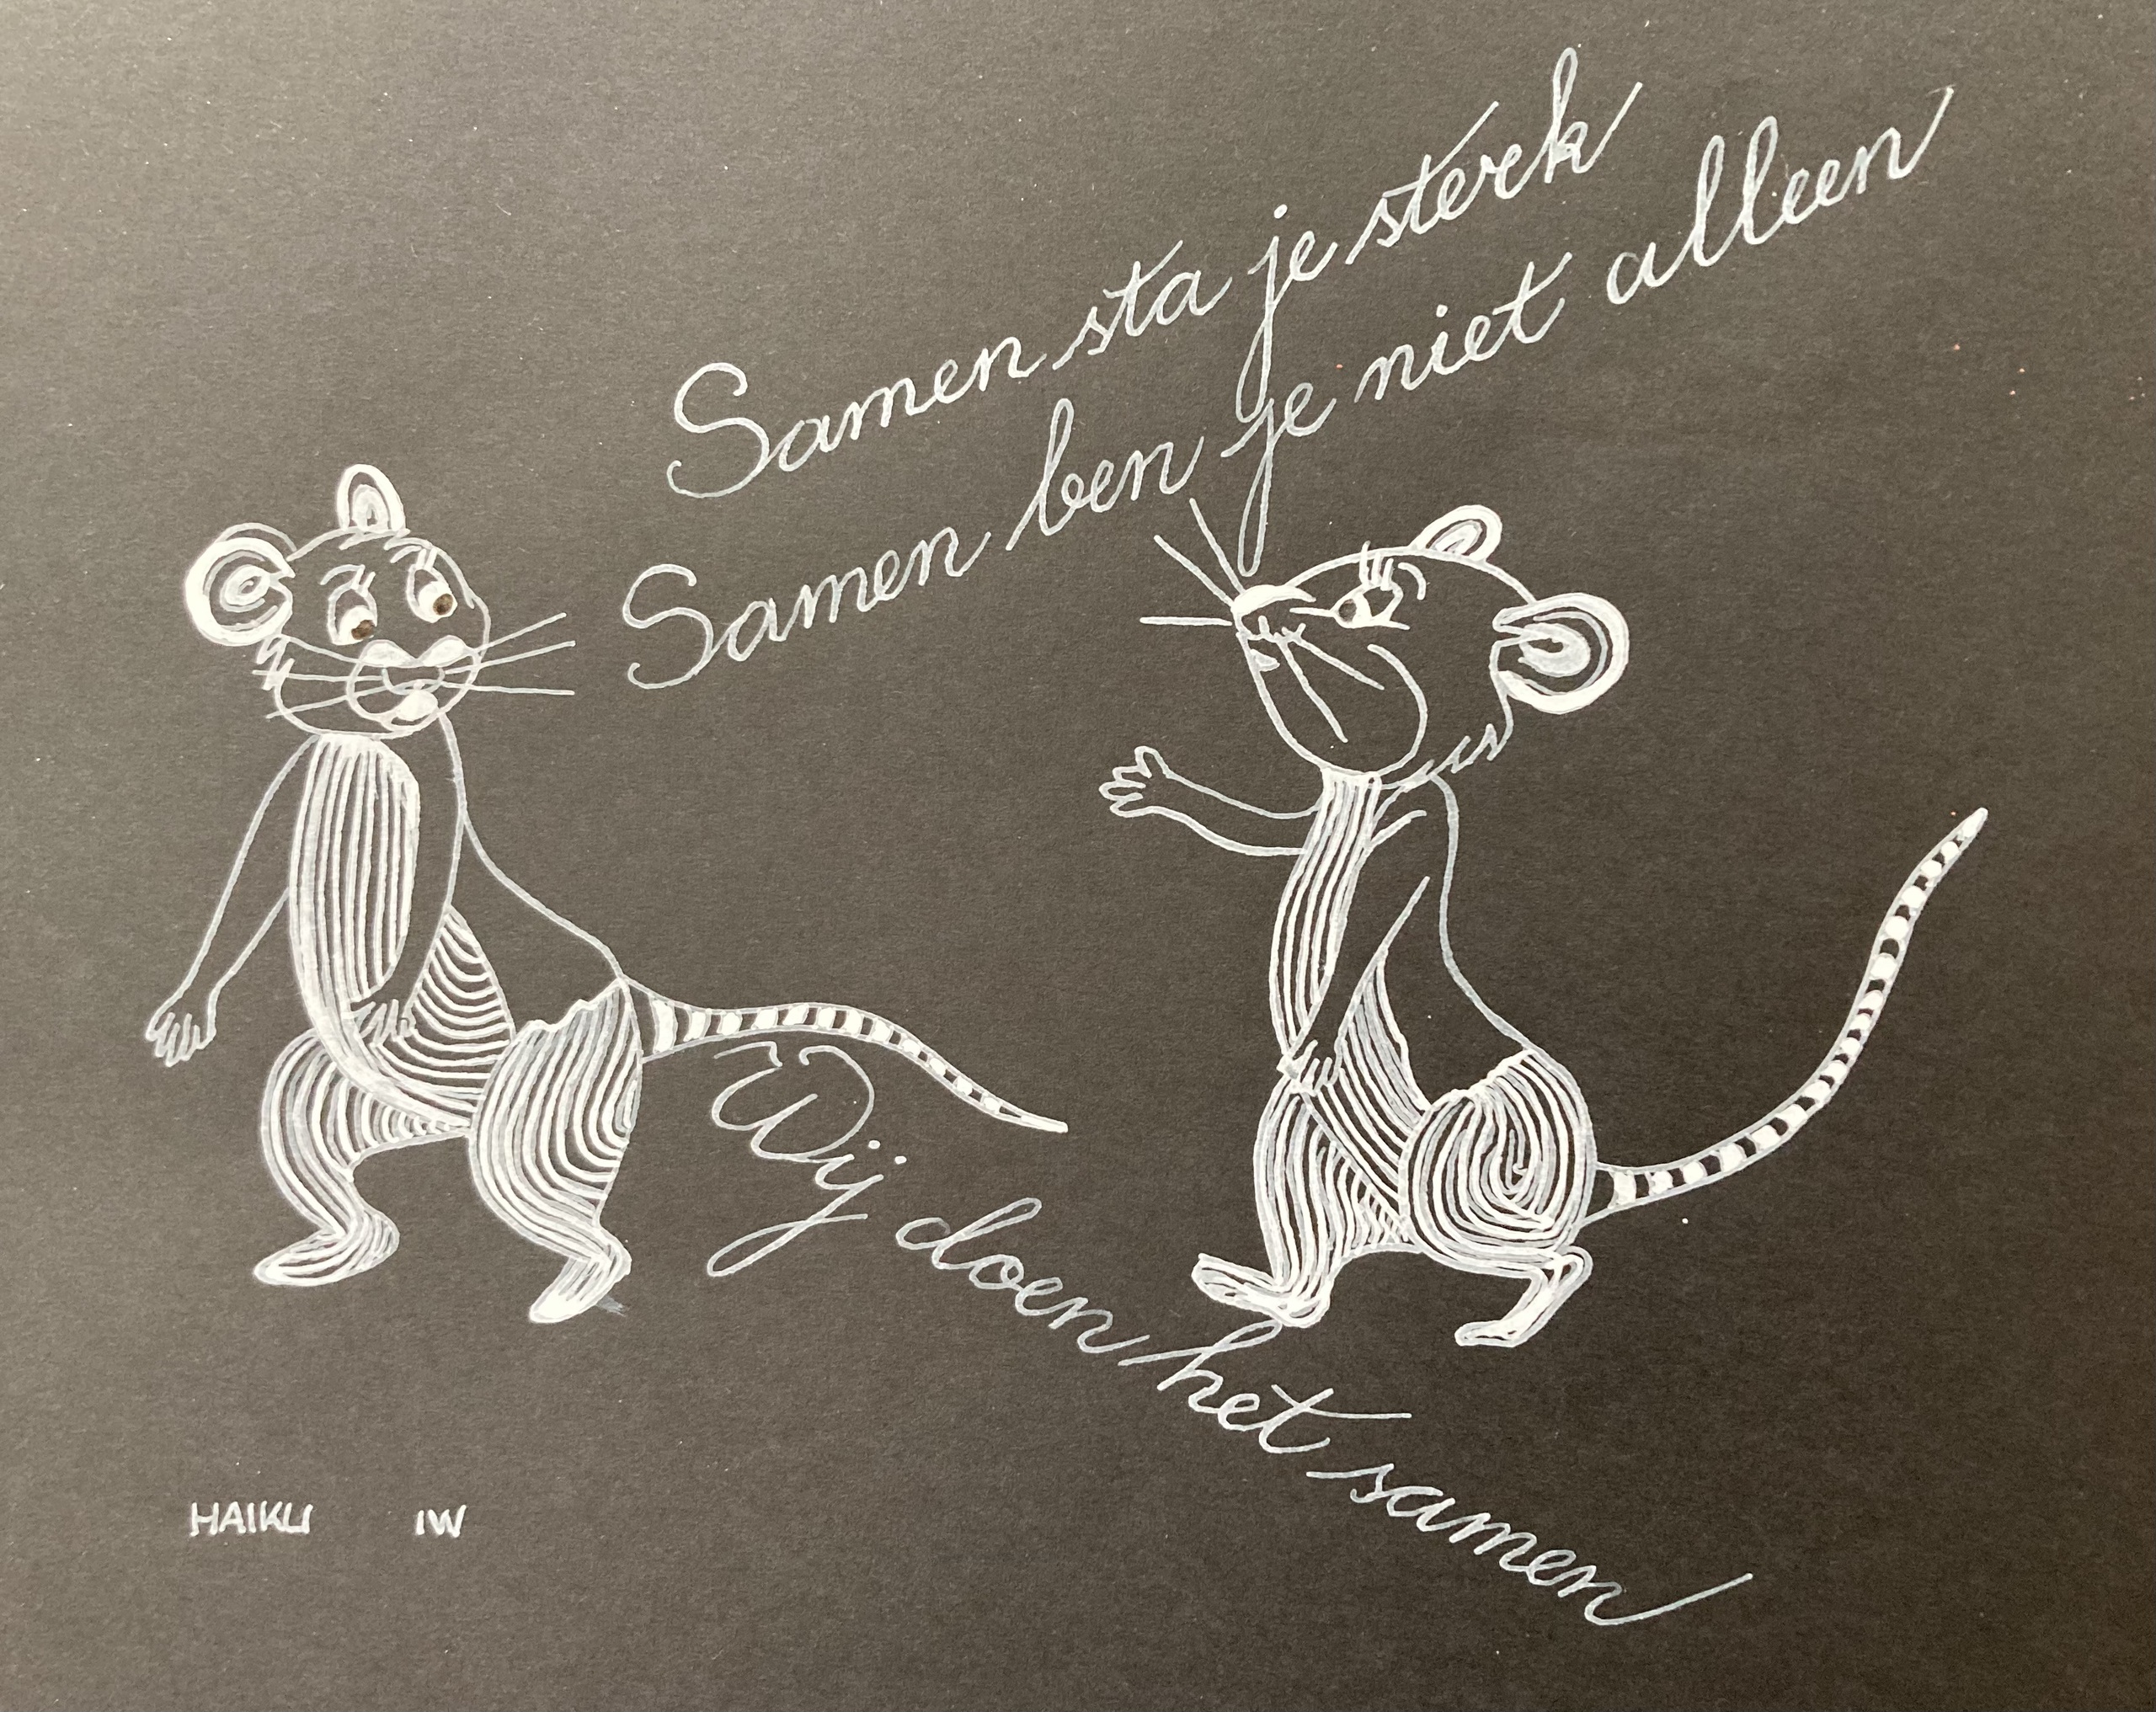 Samen sta je sterk
Samen ben je niet alleen
Wij doen het samen
HAIKU IW